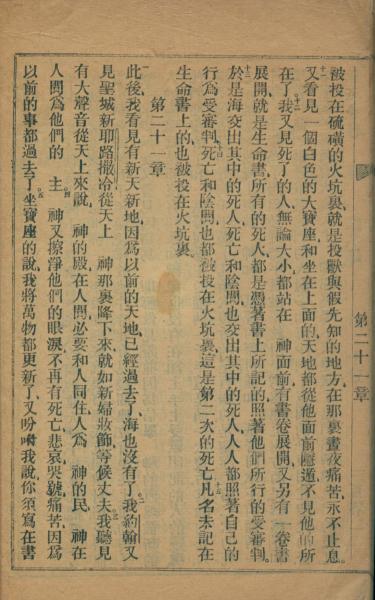 被投在硫磺的火坑裏、就是投獸與假先知的地方、在那裏晝夜痛苦、永不止息。
十一又看見一個白色的大寶座、和坐在上面的、天地都從他面前隱遁、不見他的所
在了。十二我又見死了的人、無論大小、都站在　神面前、有書卷展開、又另有一卷書
展開、就是生命書、所有的死人、都是憑著書上所記的、照著他們所行的受審判。
十三於是海交出其中的死人、死亡和陰間、也交出其中的死人、人人都照著自己的
行爲受審判。十四死亡和陰間也都被投在火坑裏、這是第二次的死亡。十五凡名未記在
生命書上的、也被投在火坑裏。
第二十一章
此後、我看見有新天新地、因爲以前的天地已經過去了、海也沒有了。二我約翰又
見聖城新耶路撒冷、從天上　神那裏降下來、就如新婦妝飾等候丈夫。三我聽見
有大聲音從天上來說、　神的殿在人間、必要和人同住、人爲　神的民、　神在
人間爲他們的　主。四　神又擦淨他們的眼淚、不再有死亡、悲哀、哭號、痛苦、因爲
以前的事都過去了。五坐寶座的說、我將萬物都更新了、又吩咐我說、你須寫在書
第二十一章